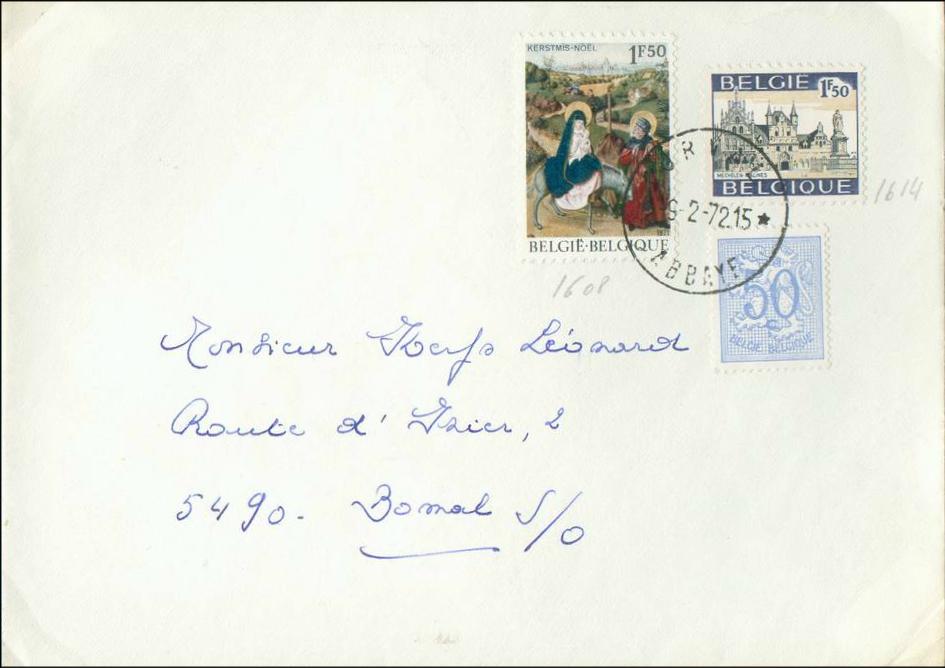 KERSTMIS-NOËL 1F50
BELGIË·BELGIQUE
BELGIË
1F50
MECHELEN MALINES
BELGIQUE
-2-72 15 ★
ABBAYE
1614
1608
50
BELGIË BELGIQUE
Monsieur Léonard
Route d' Izier, 2
5490. Bomal S/O